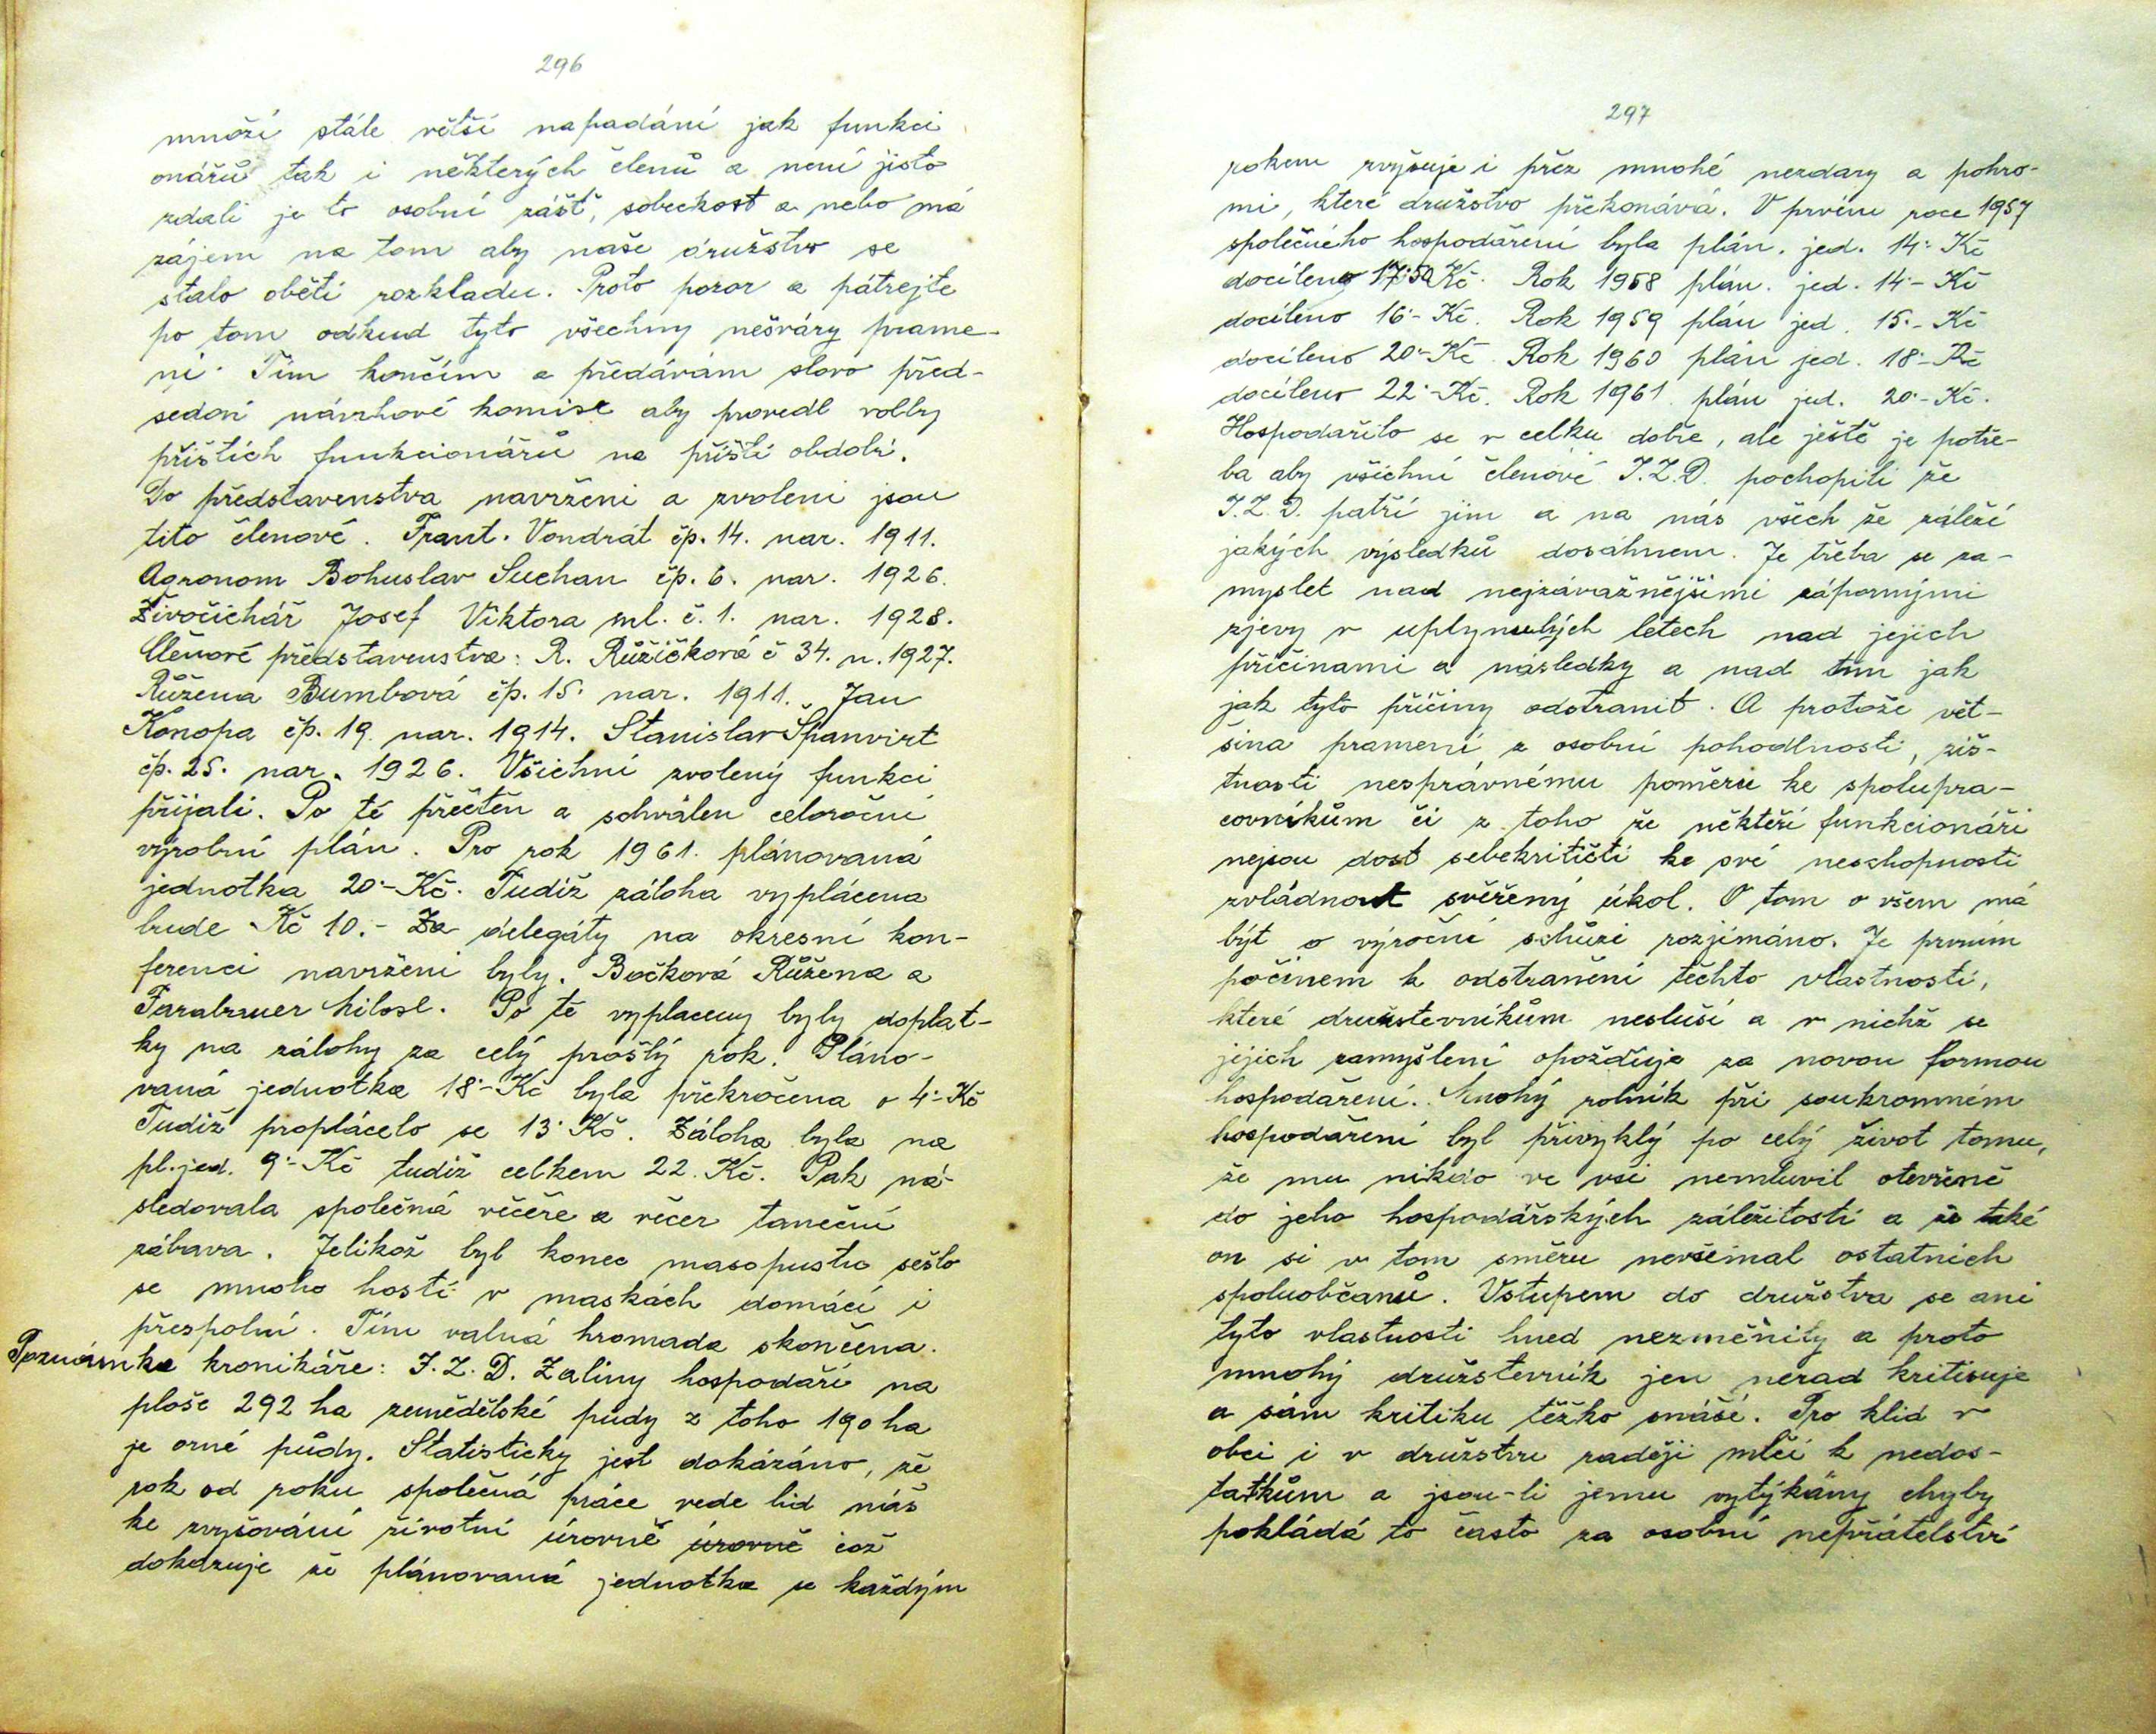 296
množí stále větší napadání jak funkci
onářů tak i některých členů a není jisto
zdali je to osobní zášť, sobeckost a nebo má
zájem na tom aby naše družstvo se
stalo obětí rozkladu. Proto pozor a pátrejte
po tom odkud tyto všechny nešváry prame-
ní. Tím končím a předávám slovo před-
sedoví návrhové komise aby provedl volby
příštích funkcionářů na příští období.
Do představenstva navrženi a zvoleni jsou
tito členové. Frant. Vondrát čp. 14. nar. 1911.
Agronom Bohuslav Suchan čp. 6. nar. 1926.
Živočichář Josef Viktora ml. č. 1. nar. 1928.
Členové představenstva: R. Růžičková č 34. n. 1927.
Růžena Bumbová čp. 15. nar. 1911. Jan
Konopa čp. 19. nar. 1914. Stanislav Španvirt
čp. 25. nar. 1926. Všichní zvolený funkci
přijali. Po té přečtěn a schválen celoroční
výrobní plán. Pro rok 1961. plánovaná
jednotka 20·- Kč. Tudíž záloha vyplácena
bude Kč 10.- Za delegáty na okresní kon-
ferenci navrženi byly. Bočková Růžena a
Farabrauer Milosl. Po té vyplaceny byly doplat-
ky na zálohy za celý prošlý rok. Pláno-
vaná jednotka 18·- Kč byla překročena o 4·- Kč
Tudíž proplácelo se 13· Kč. Záloha byla na
pl. jed. 9·- Kč tudíž celkem 22. Kč. Pak ná-
sledovala společná věčeře a věčer taneční
zábava. Jelikož byl konec masopustu sešlo
se mnoho hostí v maskách domácí i
přespolní. Tím valná hromada skončena.
Poznámka kronikáře: J. Z. D. Zaliny hospodaří na
ploše 292 ha zemědělské půdy z toho 190 ha
je orné půdy. Statisticky jest dokázáno, že
rok od roku společná práce vede lid náš
ke zvyšování životní úrovně úrovně což
dokazuje že plánovaná jednotka se každým
297
rokem zvyšuje i přez mnohé nezdary a pohro-
mi, které družstvo překonává. V prvém roce 1957
společného hospodaření byla plán. jed. 14·- Kč
docíleno 17·50 Kč. Rok 1958 plán. jed. 14·- Kč
docíleno 16·- Kč. Rok 1959 plán jed. 15·- Kč
docíleno 20·- Kč. Rok 1960 plán jed. 18·- Kč
docíleno 22·- Kč. Rok 1961 plán jed. 20·- Kč.
Hospodařilo se v celku dobře, ale ještě je potře-
ba aby všichní členové J.Z.D. pochopili že
J.Z.D. patří jim a na nás všech že záleží
jakých výsledků dosáhnem. Je třeba se za-
myslet nad nejzávažnějšími zápornými
zjevy v uplynulých letech nad jejich
příčinami a následky a nad tím jak
jak tyto příčiny odstranit. A protože vět-
šina pramení z osobní pohodlnosti, ziš-
tnosti nesprávnému poměru ke spolupra-
covníkům či z toho že někteří funkcionáři
nejsou dost sebekritičtí ke své neschopnosti
zvládnout svěřený úkol. O tom o všem má
být o výroční schůzi rozjímáno. Je prvním
počinem k odstranění těchto vlastností,
které družstevníkům nesluší a v nichž se
jejich zamyšlení opožďuje za novou formou
hospodaření. Mnohý rolník při soukromném
hospodaření byl přivyklý po celý život tomu,
že mu nikdo ve vsi nemluvil otevřeně
do jeho hospodářských záležitostí a že také
on si v tom směru nevšímal ostatních
spoluobčanů. Vstupem do družstva se ani
tyto vlastnosti hned nezměnily a proto
mnohý družstevník jen nerad kritisuje
a sám kritiku těžko snáší. Pro klid v
obci i v družstvu raději mlčí k nedos-
tatkům a jsou-li jemu vytýkány chyby
pokládá to často za osobní nepřátelství